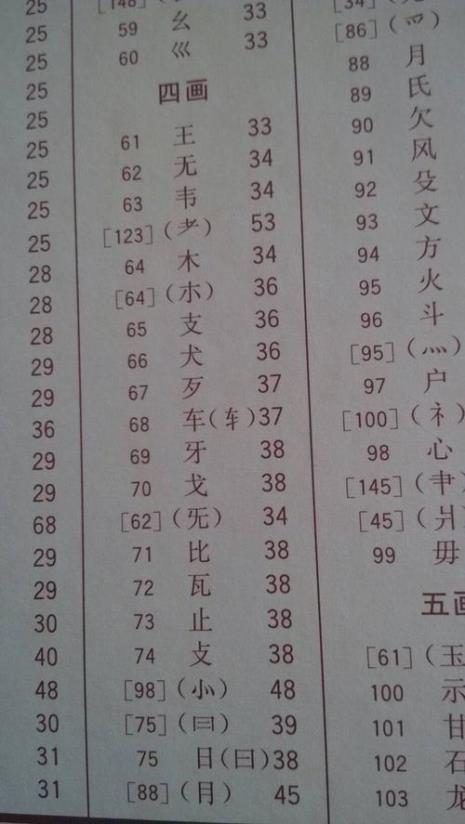 25
25
25
25
25
25
25
25
25
28
28
28
29
29
36
29
29
68
29
29
30
40
48
30
31
31
[148] 33
59 幺 33
60 巛
四画
61 王 33
62 无 34
63 韦 34
[123](耂) 53
64 木 34
[64](朩) 36
65 支 36
66 犬 36
67 歹 37
68 车(车)37
69 牙 38
70 戈 38
[62](旡) 34
71 比 38
72 瓦 38
73 止 38
74 攴 38
[98](⺗) 48
[75](⺜) 39
75 日(曰)38
[88](⺝) 45
[34]
[86](爫)
88 月
89 氏
90 欠
91 风
92 殳
93 文
94 方
95 火
96 斗
[95](灬)
97 户
[100](礻)
98 心
[145](肀)
[45](爿)
99 毋
五画
[61](玉
100 示
101 甘
102 石
103 龙